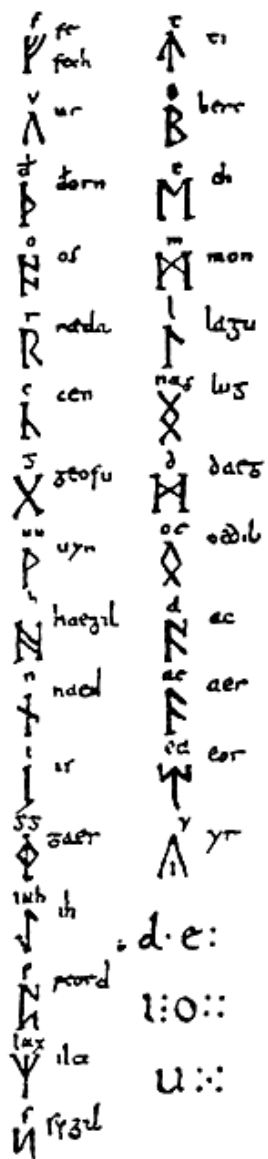 f
ᚠ fe
feoh
v
ᚢ ur
ᚦ đorn
o
ᚩ os
r
ᚱ ræda
c
ᚳ cen
g
ᚷ geofu
uu
ᚹ uyn
h
ᚻ haegil
n
ᚾ naed
i
ᛁ is
gg
ᛄ gaer
ᛇ ih
p
ᛈ
ᛉ
s
ᛋ sygil
t
ᛏ ti
b
ᛒ berc
e
ᛖ eh
m
ᛗ mon
l
ᛚ lagu
nag
ᛝ lug
d
ᛞ daeg
oe
ᛟ oedil
ᚪ ac
ae
ᚫ aer
ea
ᛠ eor
y
ᚣ yr
: d · e :
l⋮o::
u